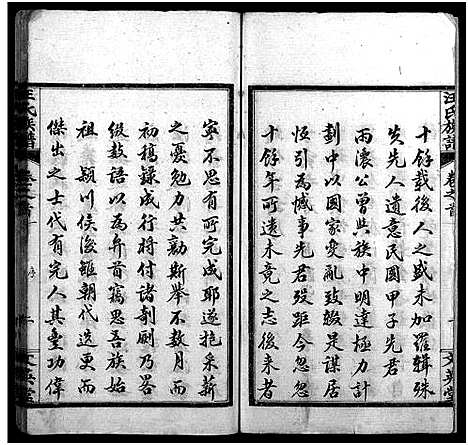 汪氏族譜
卷之首
文英堂
十餘載後人之盛未加羅輯殊
失先人遺意民國甲子先君
雨濃公曾與族中明達極力計
劃中以國家變亂致輟是謀居
恒引為憾事先君歿距今忽忽
十餘年何遺未竟之志後來者
寧不思有所完成耶遂抱采薪
之憂勉力共勷斯舉不數月而
初稿錄成行將付諸剞劂乃畧
綴数語以為弁首竊思吾族始
祖潁川侯後雖朝代迭更而
傑出之士代有完人其豐功偉
汪氏族譜
卷之首
序
二
文英堂